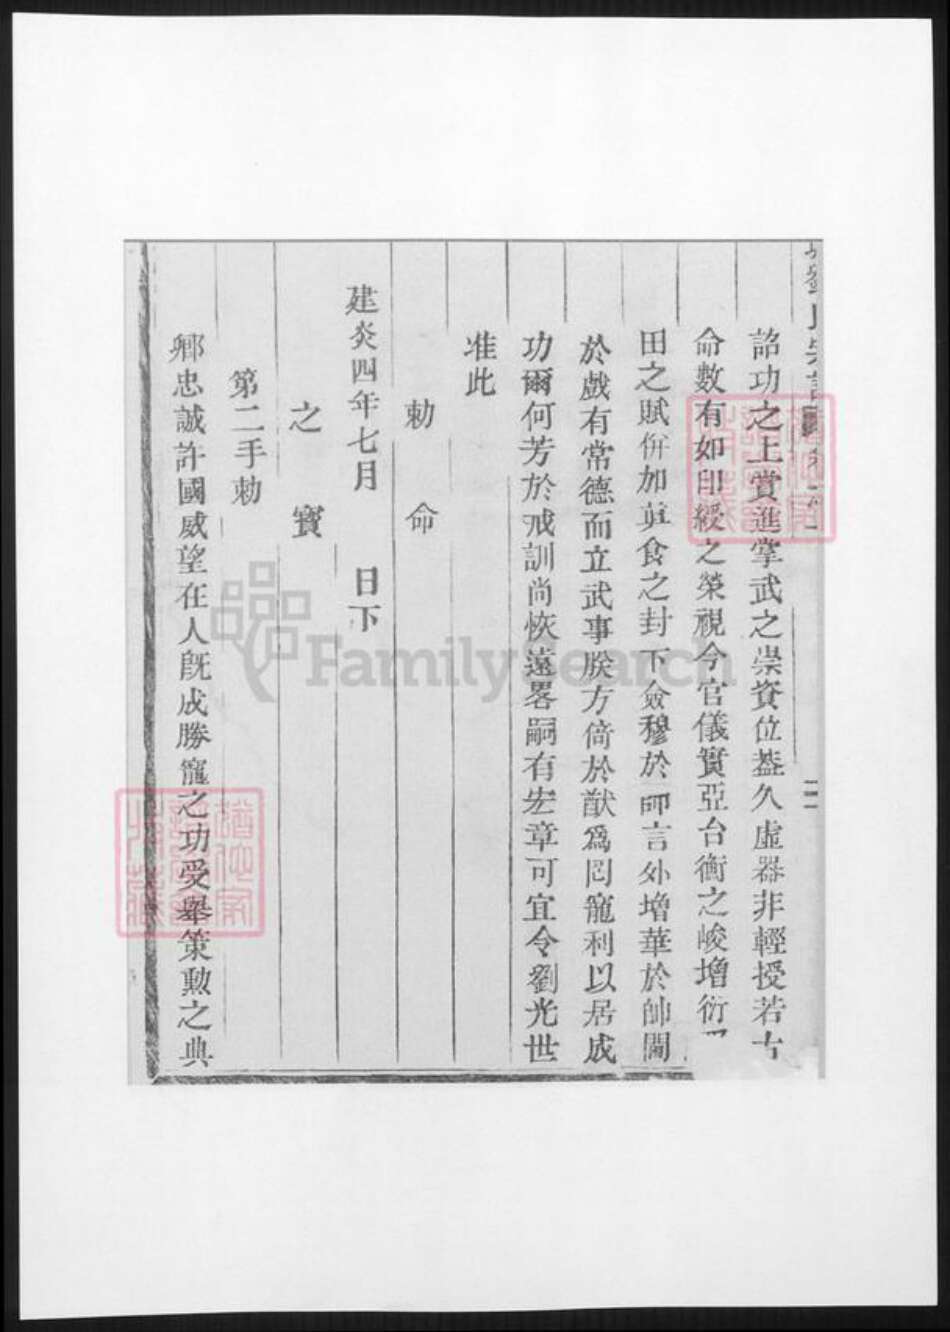 詔功之上賞進掌武之崇資位益久虛器非輕授若古
命數有如印綬之榮視今官儀實亞台衡之峻增衍
田之賦併加真食之封下僉穆於師言外增華於帥閫
於戲有常德而立武事朕方倚於猷爲罔寵利以居成
功爾何芳於戒訓尚恢遠畧嗣有宏章可宜令劉光世
准此
勅命
建炎四年七月 日下
之寳
第二手勅
鄉忠誠許國威望在人旣成勝寵之功受舉策勲之典
FamilySearch